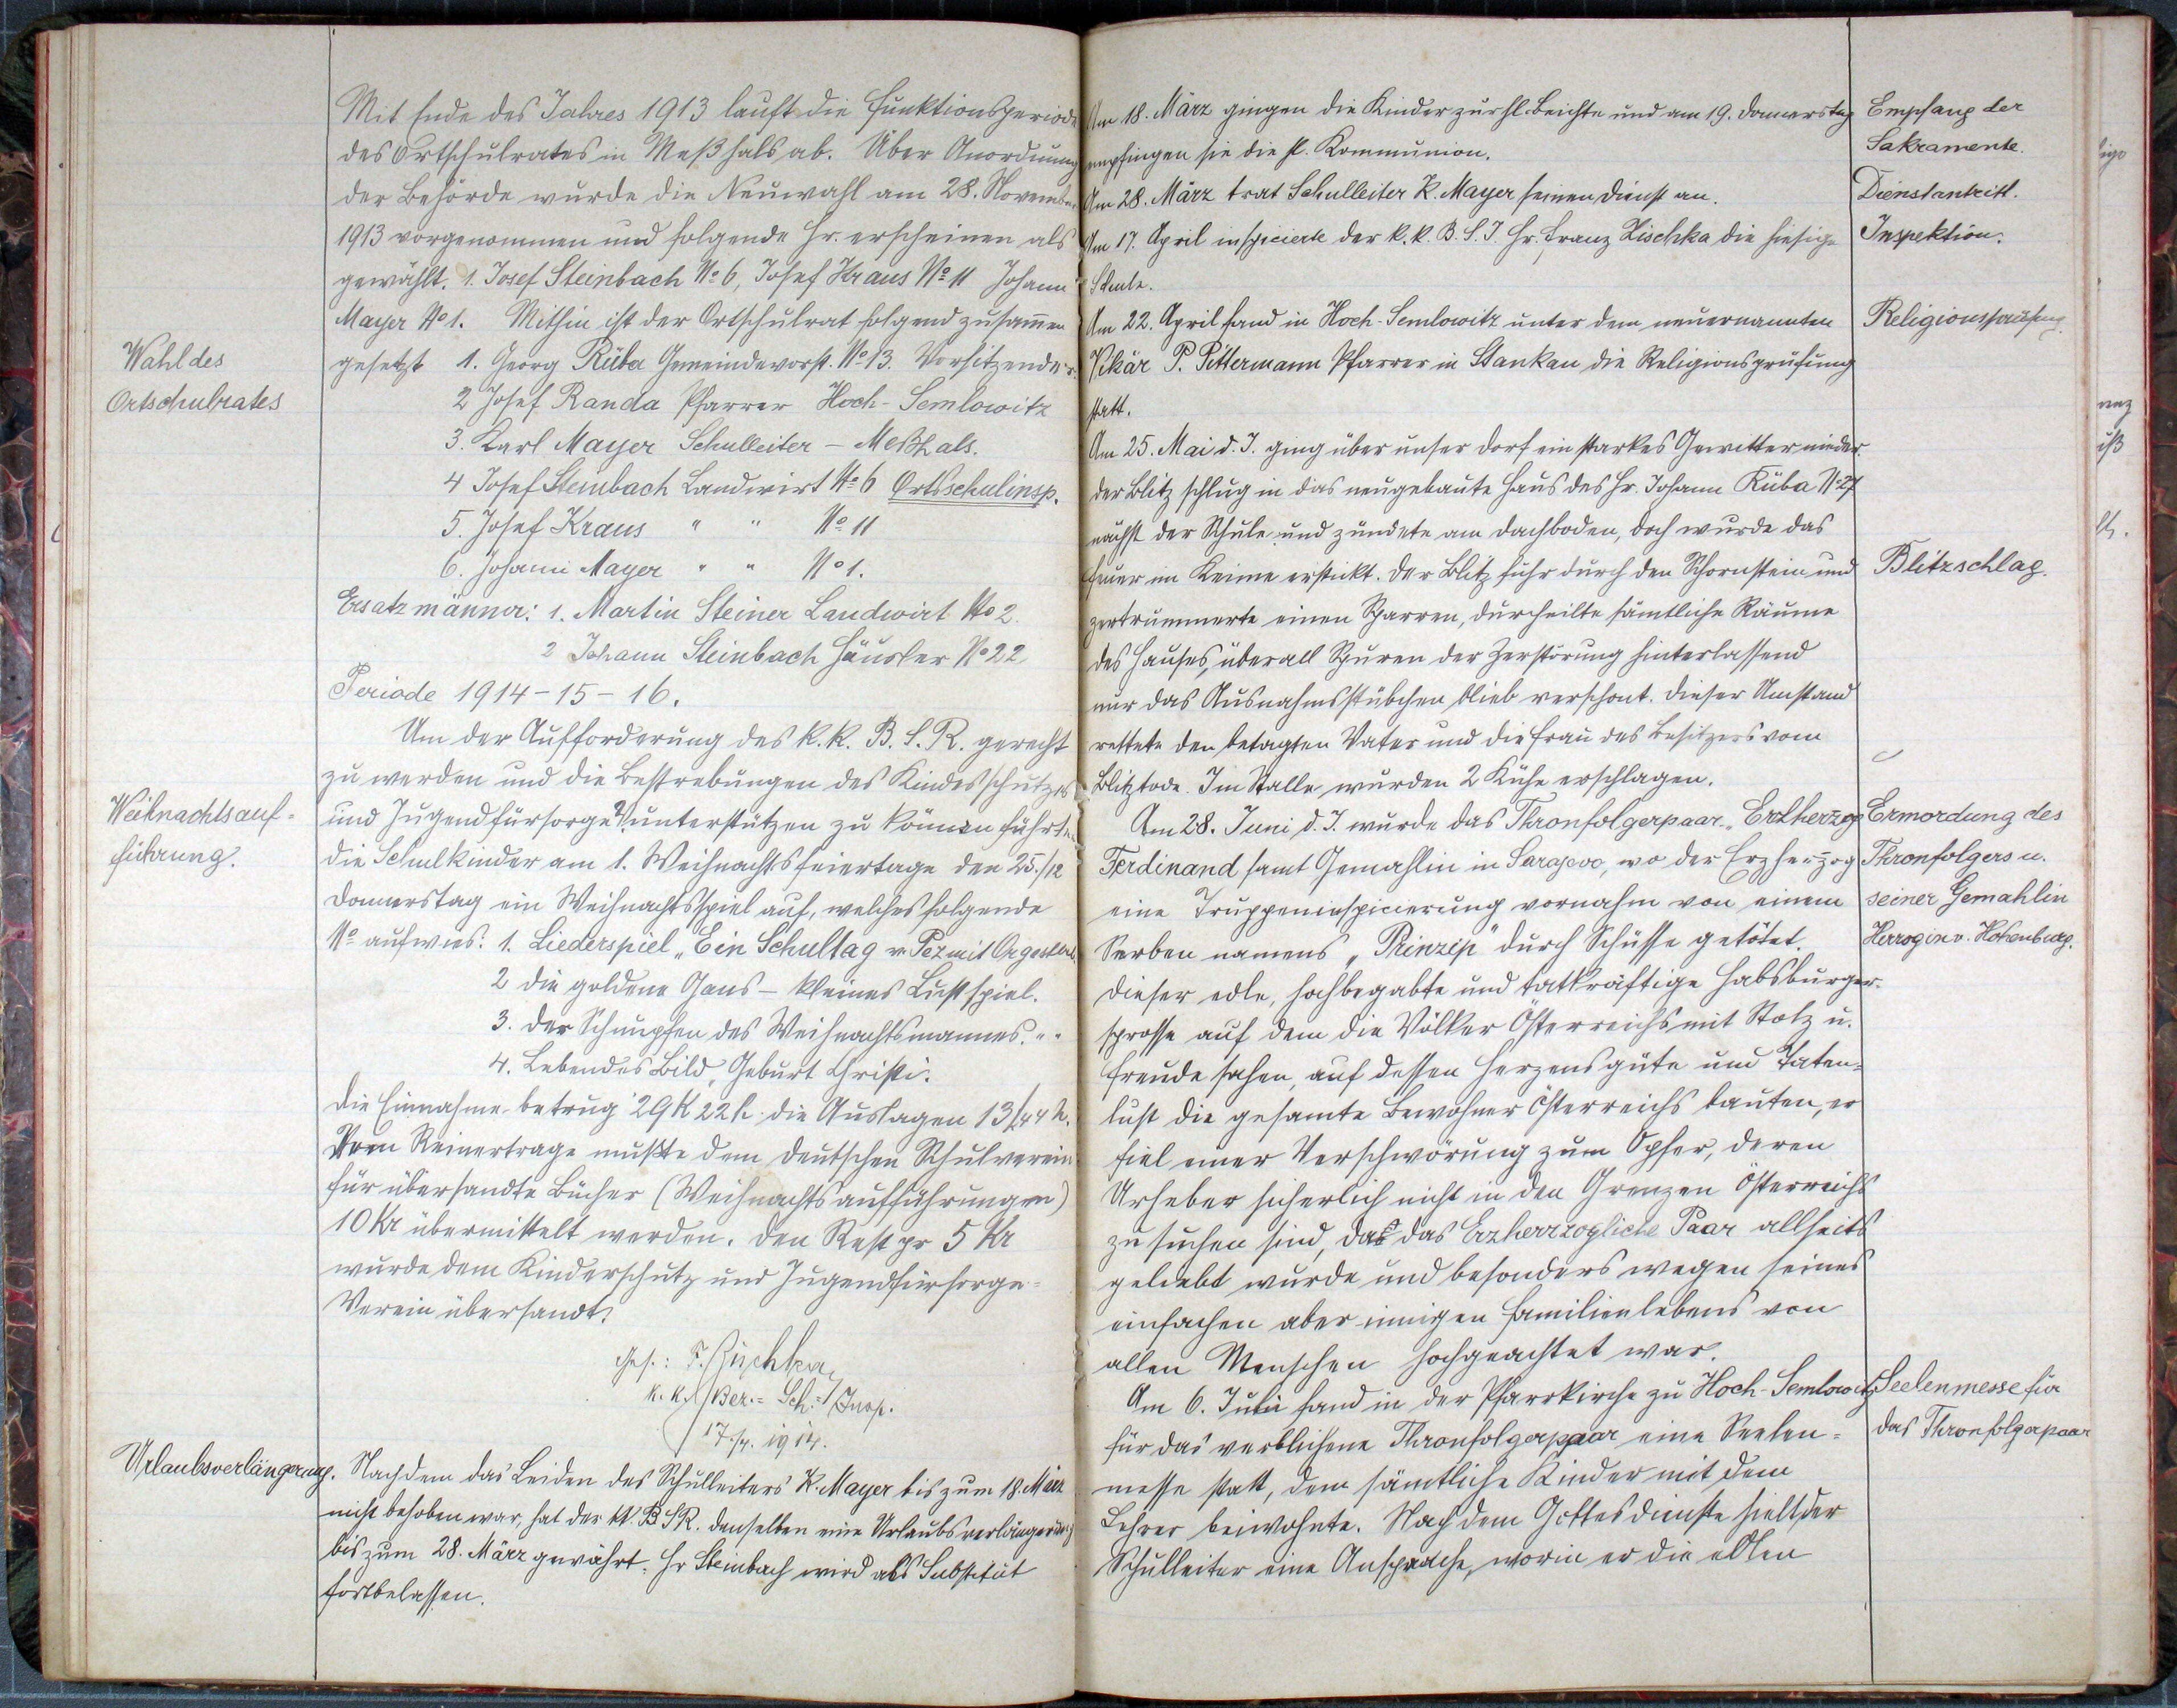 Mit Ende des Jahres 1913 lauft die Funktionsperiode
des Ortschulrates in Meßhals ab. Über Anordnung
der Behörde wurde die Neuwahl am 28. November
1913 vorgenommen und folgende Hr. erscheinen als
gewählt. 1. Josef Steinbach No 6, Josef Kraus No 11 Johann
Mayer No 1. Mithin ist der Ortschulrat folgend zusammen
Wahl des
Ortschulrates
gesetzt 1. Georg Rüba Gemeindevorst. No 13. Vorsitzender.
2 Josef Randa Pfarrer Hoch-Semlowitz
3. Karl Mayer Schulleiter – Meßhals.
4 Josef Steinbach Landwirt No 6 Ortsschulinsp.
5. Josef Kraus " " No 11
6. Johann Mayer " " No 1.
Ersatzmänner: 1. Martin Steiner Landwirt No 2.
2 Johann Steinbach Häusler No 22.
Periode 1914-15-16.
Um der Aufforderung des k.k. B.S.R. gerecht
zu werden und die Bestrebungen des Kindesschutzes
Weihnachtsauf-
führung.
und Jugendfürsorge unterstützen zu können führten
die Schulkinder am 1. Weihnachtsfeiertage den 25./12
Donnerstag ein Weihnachtsspiel auf, welches folgende
No aufwies: 1. Liederspiel „Ein Schultag v. Pez mit
2 die goldene Gans – kleines Lustspiel.
3. Der Schnupfen des Weihnachtsmannes. " "
4. Lebendes Bild, Geburt Christi.
Die Einnahme betrug 29 K 22 h. die Auslagen 13 K 44 h.
Vom Reinertrage mußte dem deutschen Schulverein
für übersandte Bücher (Weihnachtsaufführungen)
10 Kr übermittelt werden. Den Rest pr 5 Kr
wurde dem Kinderschutz und Jugendfürsorge-
Verein übersandt.
Ges.: F. Zischka
k.k. Bez.-Sch.-Insp.
17./4. 1914.
Urlaubsverlängerung.
Nachdem das Leiden des Schulleiters K. Mayer bis zum 18. März
nicht behoben war, hat der kk. BSR. denselben eine Urlaubsverlängerung
bis zum 28. März gewährt. Hr Steinbach wird als Substitut
fortbelassen.
Am 18. März gingen die Kinder zur hl. Beichte und am 19. Donnerstag
empfingen sie die hl. Kommunion.
Empfang der
Sakramente.
Am 28. März trat Schulleiter K. Mayer seinen Dienst an.
Dienstantritt.
Am 17. April inspicierte der k.k. B.S.I. Hr. Franz Zischka die hiesige
Schule.
Inspektion.
Am 22. April fand in Hoch-Semlowitz unter dem neuernannten
Vikär P. Pittermann Pfarrer in Stankau die Religionsprüfung
statt.
Religionsprüfung.
Am 25. Mai d. J. ging über unser Dorf ein starkes Gewitter nieder.
der Blitz schlug in das neugebaute Haus des Hr. Johann Rüba No 27
nächst der Schule und zündete am Dachboden, doch wurde das
Feuer im Keime erstickt. Der Blitz fuhr durch den Schornstein und
Blitzschlag.
zertrümmerte einen Sparren, durcheilte sämtliche Räume
des Hauses, überall Spuren der Zerstörung hinterlassend
nur das Ausnahmsstübchen blieb verschont. Dieser Umstand
rettete den betagten Vater und die Frau des Besitzers vom
Blitztode. Im Stalle wurden 2 Kühe erschlagen.
Am 28. Juni d. J. wurde das Thronfolgerpaar „Erzherzog
Ferdinand samt Gemahlin in Sarajevo, wo der Erzherzog
eine Truppeninspicierung vornahm von einem
Serben namens „Prinzip" durch Schüsse getötet.
Ermordung des
Thronfolgers u.
seiner Gemahlin
Herzogin v. Hohenberg.
Dieser edle, hochbegabte und tatkräftige Habsburger-
sprosse auf dem die Völker Österreichs mit Stolz u.
Freude sahen, auf dessen Herzensgüte und Taten-
lust die gesamte Bewohner Österreichs bauten, er
fiel einer Verschwörung zum Opfer, deren
Urheber sicherlich nicht in den Grenzen Österreichs
zu suchen sind, das das Erzherzogliche Paar allseits
geliebt wurde und besonders wegen seines
einfachen aber innigen Familienlebens von
allen Menschen hochgeachtet war.
Am 6. Juli fand in der Pfarrkirche zu Hoch-Semlowitz
für das verblichene Thronfolgerpaar eine Seelen-
messe statt, dem sämtliche Kinder mit dem
Seelenmesse für
das Thronfolgerpaar
Lehrer beiwohnte. Nach dem Gottesdienste hielt der
Schulleiter eine Ansprache, worin er die edlen